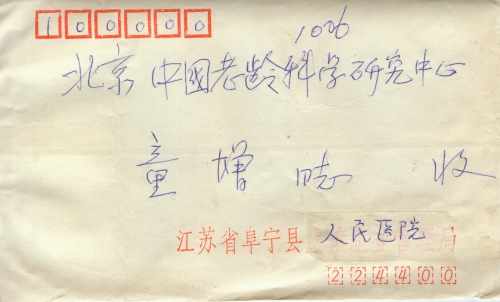 100000
1006
北京中国老龄科学研究中心
童增 同志 收
江苏省阜宁县 人民医院
224400